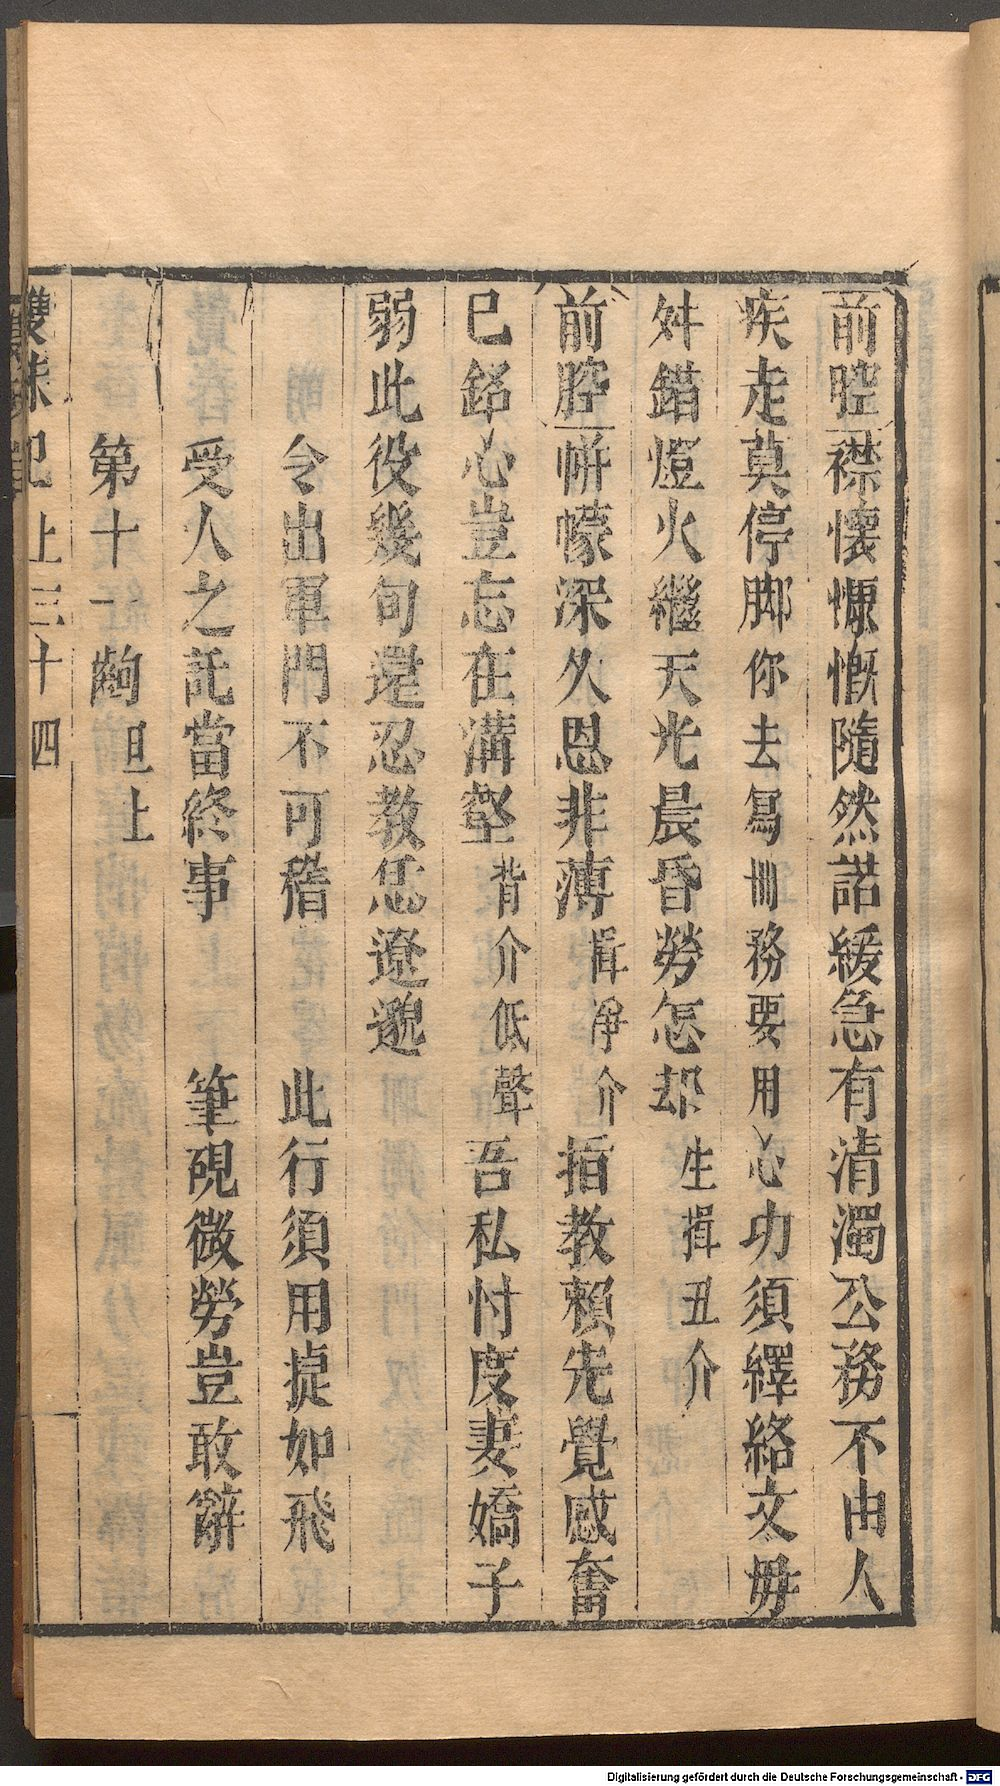 前腔襟懷慷慨隨然諾緩急有清濁公務不由人
疾走莫停脚你去冩冊務要用心功須繹絡文毋
舛錯燈火繼天光晨昏勞怎却生揖丑介
前腔帡幪深久恩非薄揖淨介指教賴先覺感奮
已銘心豈忘在溝壑背介低聲吾私忖度妻嬌子
弱此役幾句還忍教恁遼邈
令出軍門不可稽　此行須用㨗如飛
受人之託當終事　筆硯微勞豈敢辭
第十一齣旦上
雙珠記上三十四
Digitalisierung gefördert durch die Deutsche Forschungsgemeinschaft - DFG